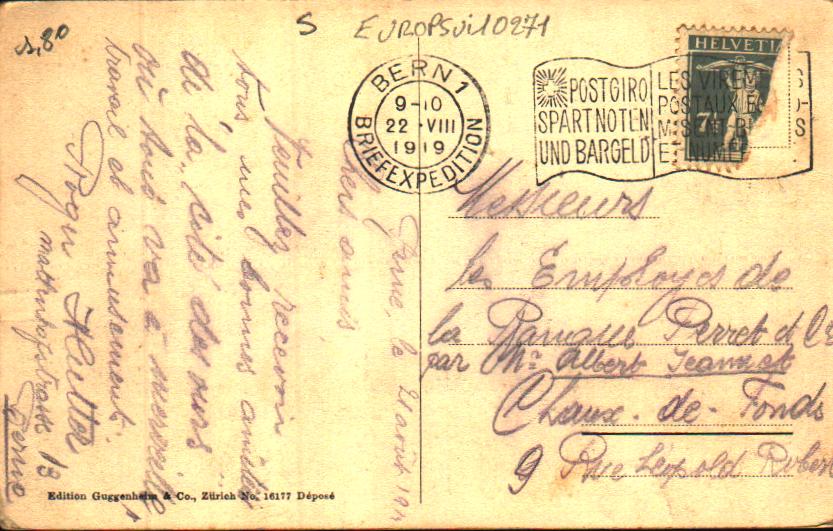 s,80
S
EUROPSVi10271
BERN 1
9-10
22·VIII
1919
BRIEFEXPEDITION
POSTGIRO
SPART NOTEN
UND BARGELD
LES VIREM
POSTAUX
HELVETIA
7½
Berne, le 21 août 19
Chers amis
Veuillez recevoir
tous, mes bonnes amitiés
de la cité des ours
où tout va à merveille,
travail et amusement.
Roger
Mattenhofstrasse 13
Berne
Messieurs
les Employés de
la Banque Perret & Cie
par Mr Albert Jeanneret
Chaux-de-Fonds
9 Rue Léopold Robert
Edition Guggenheim & Co., Zürich No. 16177 Déposé